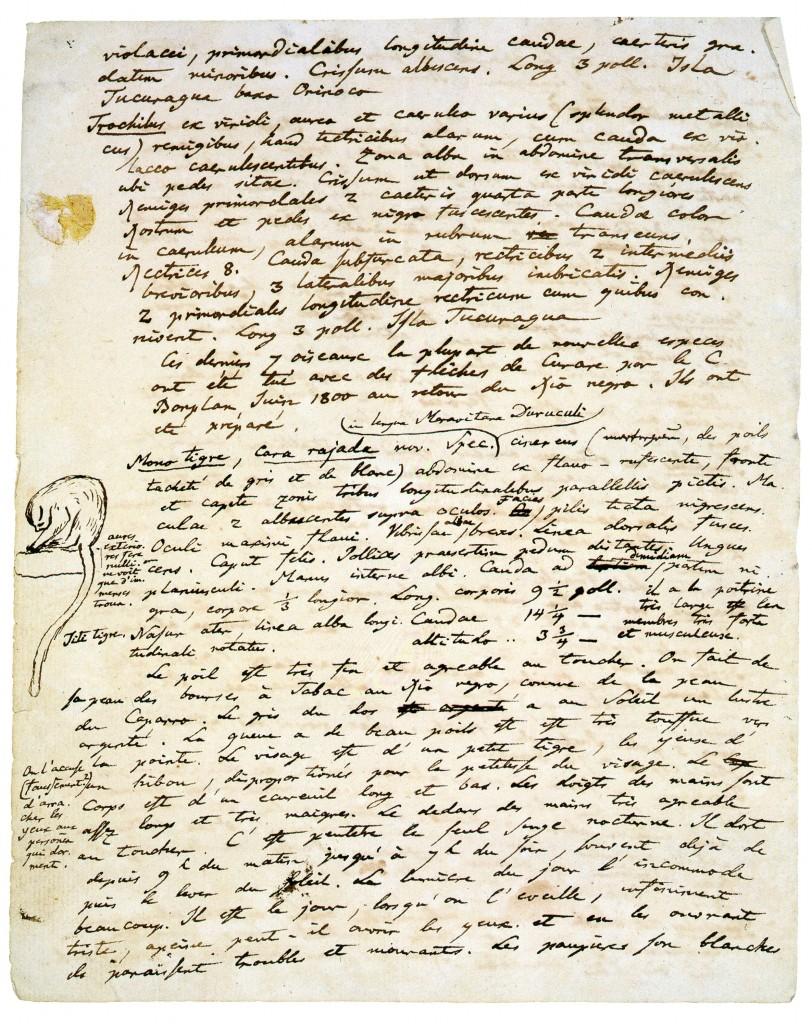 violacei, primordialibus longitudine caudae, caeteris gra-
datim minoribus. Crissum albescens. Long 3 poll. Isla
Tucuragua baxo Orinoco
Trochilus ex viridi, aureo et caeruleo varius (splendor metalli
cus) remigibus, haud tectricibus alarum, cum cauda ex vio-
laceo caerulescentibus. Zona alba in abdomine transversalis
ubi pedes sitae. Crissum ut dorsum ex viridi caerulescens
Remiges primordiales 2 caeteris quarta parte longiores
Rostrum et pedes ex nigro fuscescentes. Caudae color
in caeruleum, alarum in rubrum transeuns.
Rectrices 8. Cauda subfurcata, rectricibus 2 intermediis
brevioribus, 3 lateralibus majoribus imbricatis. Remiges
2 primordiales longitudine rectricum cum quibus con-
nivent. Long 3 poll. Isla Tucuragua
Ces derniers 7 oiseaux la plupart de nouvelles especes
ont été tué avec des flèches de Curare par le C
Bonplan Juin 1800 au retour du Rio negro. Ils ont
eté préparé.
(in lengua Maravitana Duruculi
Mono tigre, Cara rajada nov. Spec.) cinereus ( des poils
tacheté de gris et de blanc) abdomine ex flavo-rufescente, fronte
et capite zonis tribus longitudinalibus parallelis pictis. Ma
culae 2 albescentes supra oculos. Facies pilis tecta nigrescens.
Oculi maximi flavi. Vibrissae albae breves. Linea dorsalis fusces
cens. Caput felis. Pollices praesertim pedum distantes Ungues
planiusculi. Manus interne albi. Cauda ad dimidiam partem ni
gra, corpore 1/3 longior. Long. corporis 9 1/2 poll. il a la poitrine
Caudae 14 1/4 — très large les
altitudo .. 3 3/4 — membres très forts
et musculeuse.
Titi tigre. Nasus ater, linea alba longi-
tudinali notatus.
aures
exterio-
res fere
nulli
on voit
que d'im-
menses
trous.
Le poil est très fin et agreable au toucher. On fait de
sa peau des bourses à Tabac au Rio negro, comme de la peau
du Caparro. Le gris du dos a au Soleil un lustre
argenté. La queue a de beau poils et est très touffue vers
la pointe. Le visage est d'un petit tigre, les yeux d'
un hibou, disproportionés pour la petitesse du visage. Le
Corps est d'un ecureuil long et bas. Les doigts des mains sont
assez longs et très maigres. Le dedans des mains très agreable
au toucher. C'est peutetre le seul singe nocturne. Il dort
depuis 9 h du matin jusqu'à 7 h du soir, souvent dejà de-
puis le lever du soleil. La lumière du jour l'incommode
beaucoup. Il est le jour, lorsqu'on l'eveille, infiniment
triste, apeine peut-il ouvrir les yeux et en les ouvrant
ils paraissent troubles et mourants. Les paupières son blanches
On l'accuse
(faussement?)
d'arra-
cher les
yeux aux
personnes
qui dor-
ment.